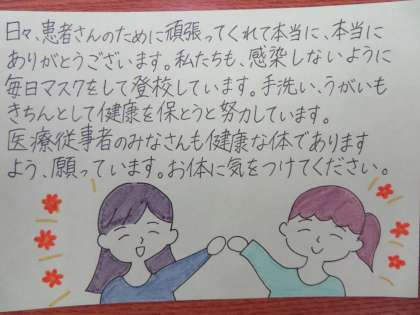 日々、患者さんのために頑張ってくれて本当に、本当に
ありがとうございます。私たちも、感染しないように
毎日マスクをして登校しています。手洗い、うがいも
きちんとして健康を保とうと努力しています。
医療従事者のみなさんも健康な体であります
よう、願っています。お体に気をつけてください。